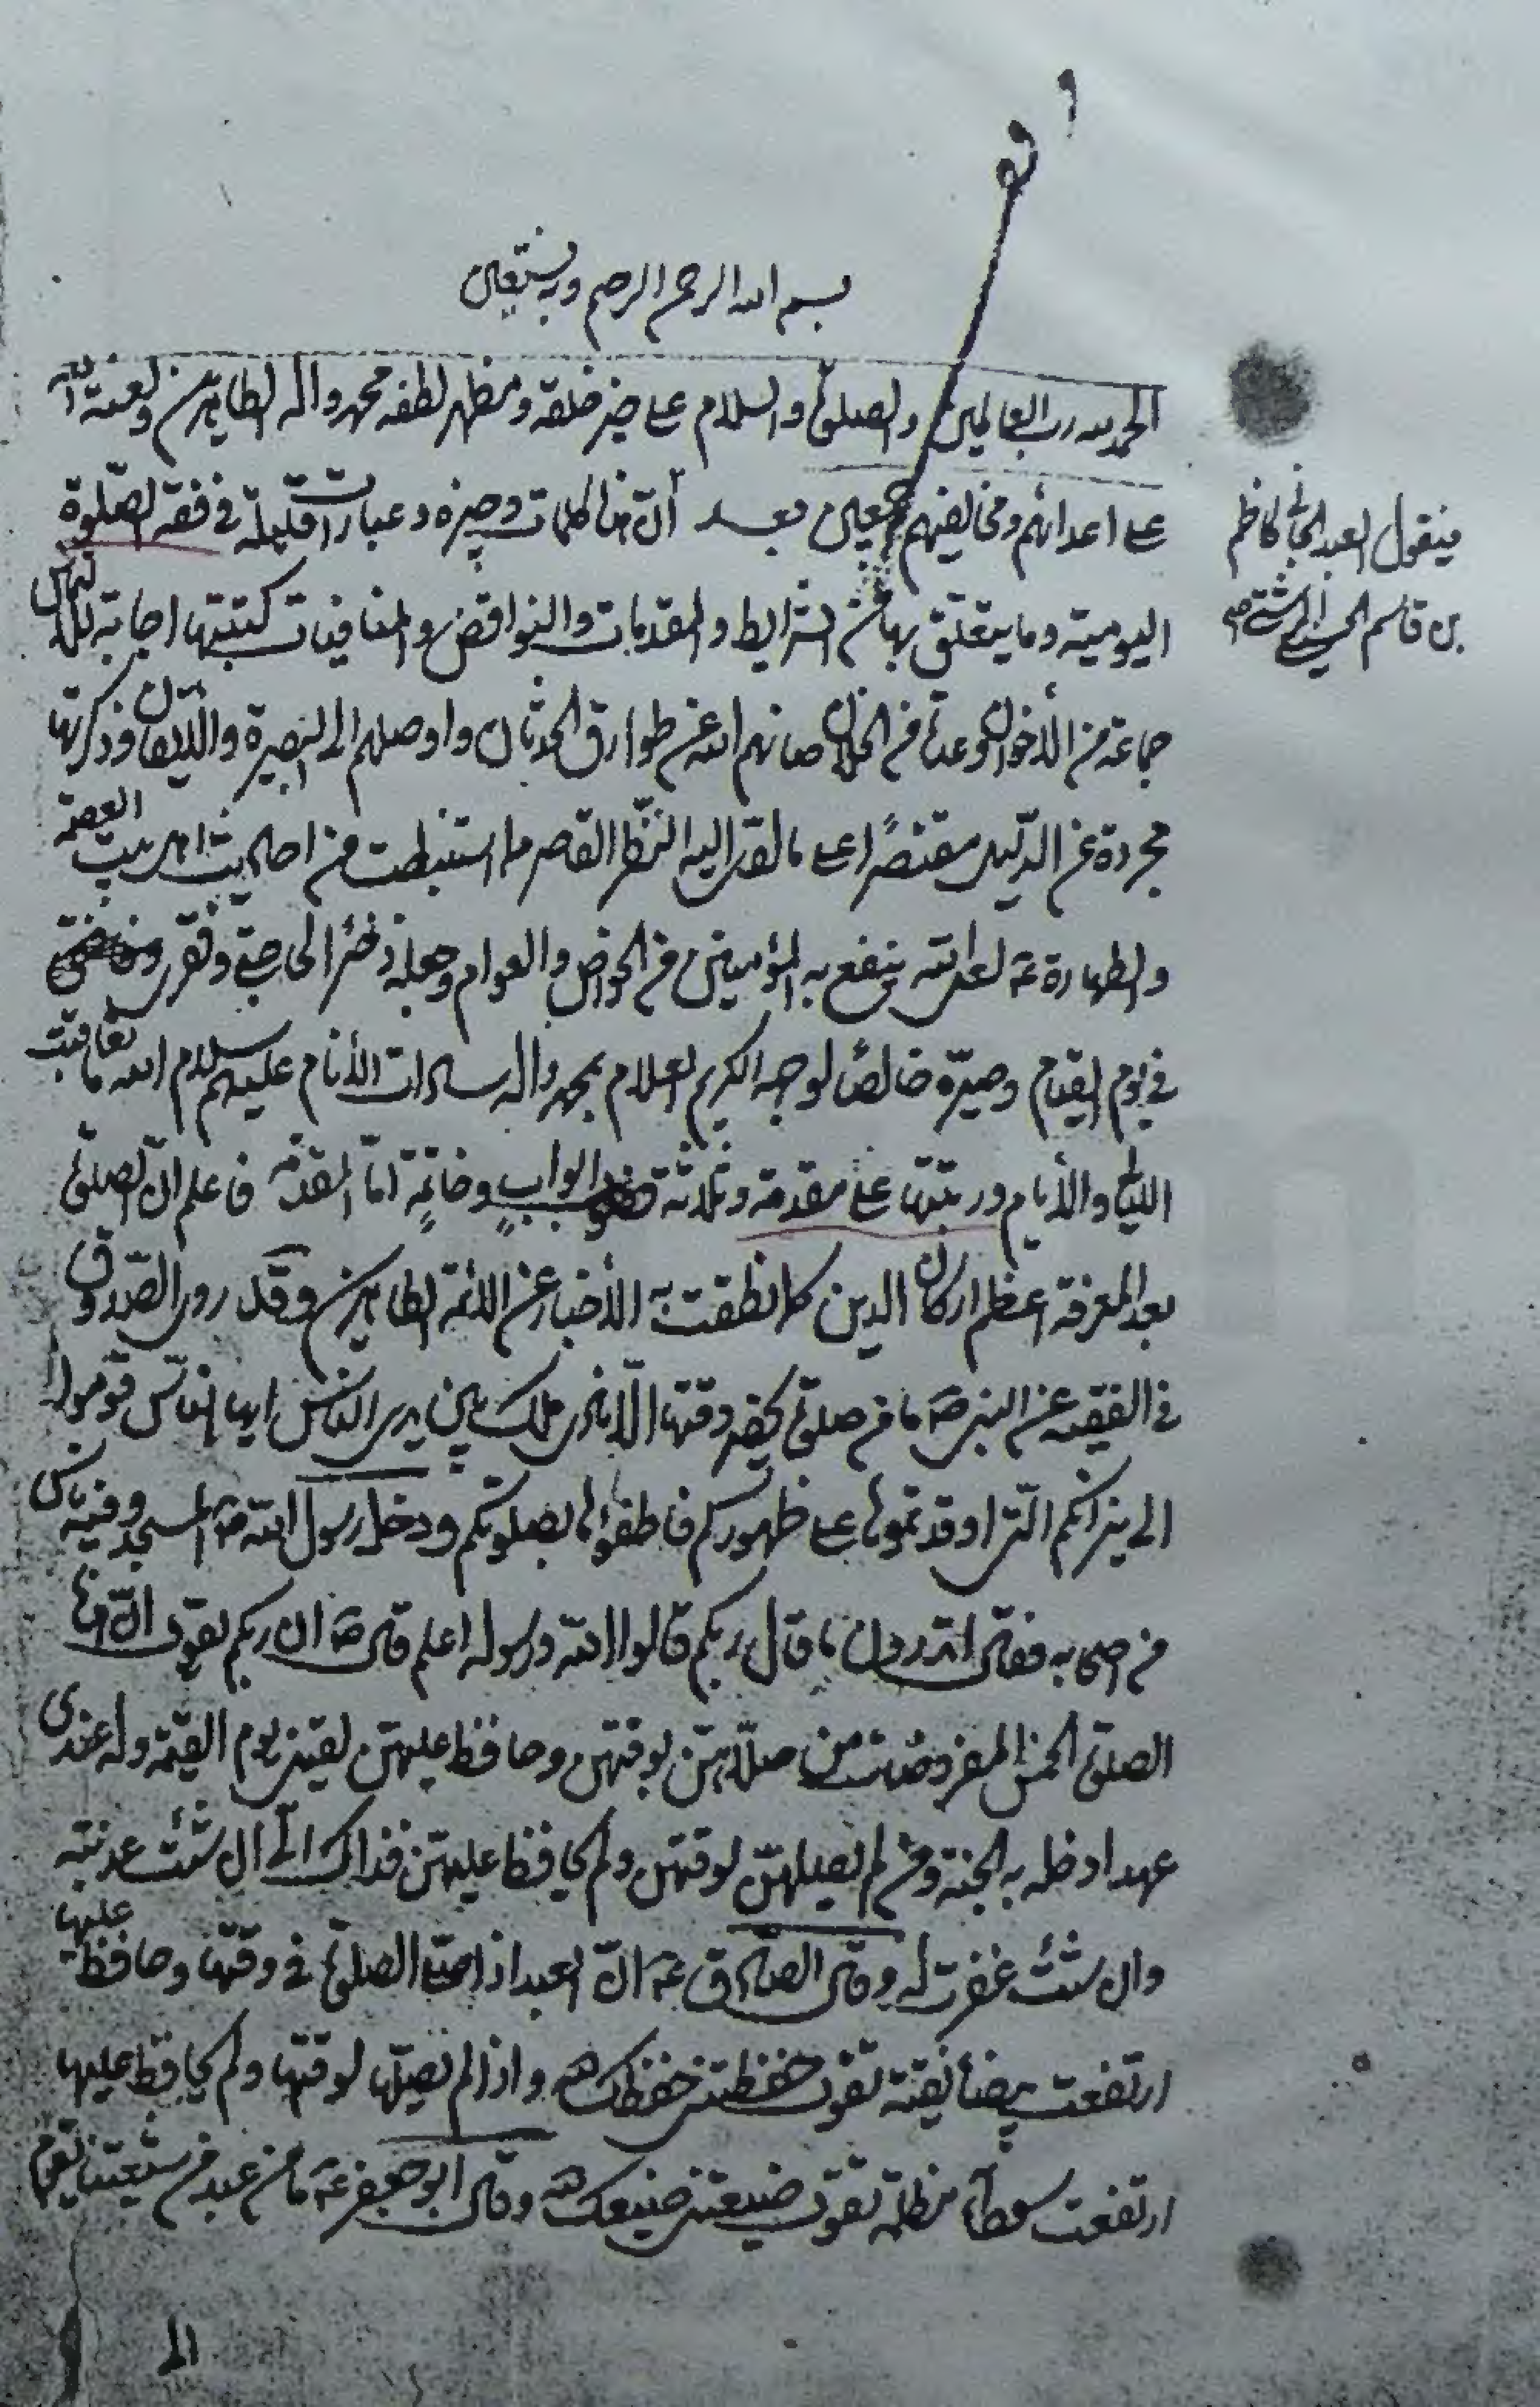 وقف
بسم الله الرحمن الرحيم وبه نستعين
الحمد لله رب العالمين والصلوة والسلام على خير خلقه ومظهر لطفه محمد واله الطاهرين ولعنة الله
على اعدائهم ومخالفيهم اجمعين وبعد انّ هذا كلمات وجيزه وعبارات قليلة في فقه الصّلوة
فيقول العبد الجاني كاظم
بن قاسم الحسيني الرشتي
اليومية وما يتعلق بها من الشرايط والمقدمات والنواقض والمنافيات كتبتها اجابة لالتماس
جماعة من الأخوان وعدة من الخلان صانهم الله عن طوارق الحدثان واوصلهم الى البصيرة والأيقان وذكرتها
مجردة عن الدّليل مقتصرًا على ما القى اليه النّظر القاصر مما استنبطت من احاديث اهل بيت العصمة
والطهارة ع لعل الله ينفع به المؤمنين من الخواص والعوام وجعله ذخرًا لى حجتي وفقرى
في يوم القيام وصيّره خالصًا لوجهه الكريم العلام بمحمد واله سادات الأنام عليهم سلام الله ما تعاقبت
الليالي والأيام ورتبتها على مقدمة وثلاثة ابواب وخاتمة امّا المقدمة فاعلم انّ الصلوة
بعد المعرفة اعظم اركان الدين كما نطقت به الأخبار عن الائمة الطاهرين وقد روى الصّدوق
في الفقيه عن النبي ص ما من صلوة يحضر وقتها الّا نادى ملك بين يدي الناس ايها الناس قوموا
الى نيرانكم الّتي اوقدتموها على ظهوركم فاطفؤها بصلوتكم ودخل رسول الله ص المسجد وفيه ناس
من اصحابه فقال اتدرون ما قال ربكم قالوا الله ورسوله اعلم قال ص ان ربكم يقول انّ هذه
الصلوة الخمس المفروضات من صلّاهنّ لوقتهن وحافظ عليهنّ لقيني يوم القيمة وله عندى
عهد ادخله به الجنة ومن لم يصلهنّ لوقتهن ولم يحافظ عليهن فذاك الىّ ان شئت عذبته
وان شئت غفرت له وقال الصّادق ع انّ العبد اذا صلّى الصلوة في وقتها وحافظ عليها
ارتفعت بيضاء نقية تقول حفظتني حفظك الله واذا لم يصلّها لوقتها ولم يحافظ عليها
ارتفعت سوداء مظلمة تقول ضيعتني ضيعك الله وقال ابو جعفر ع ما من عبد من شيعتنا يقوم
الى